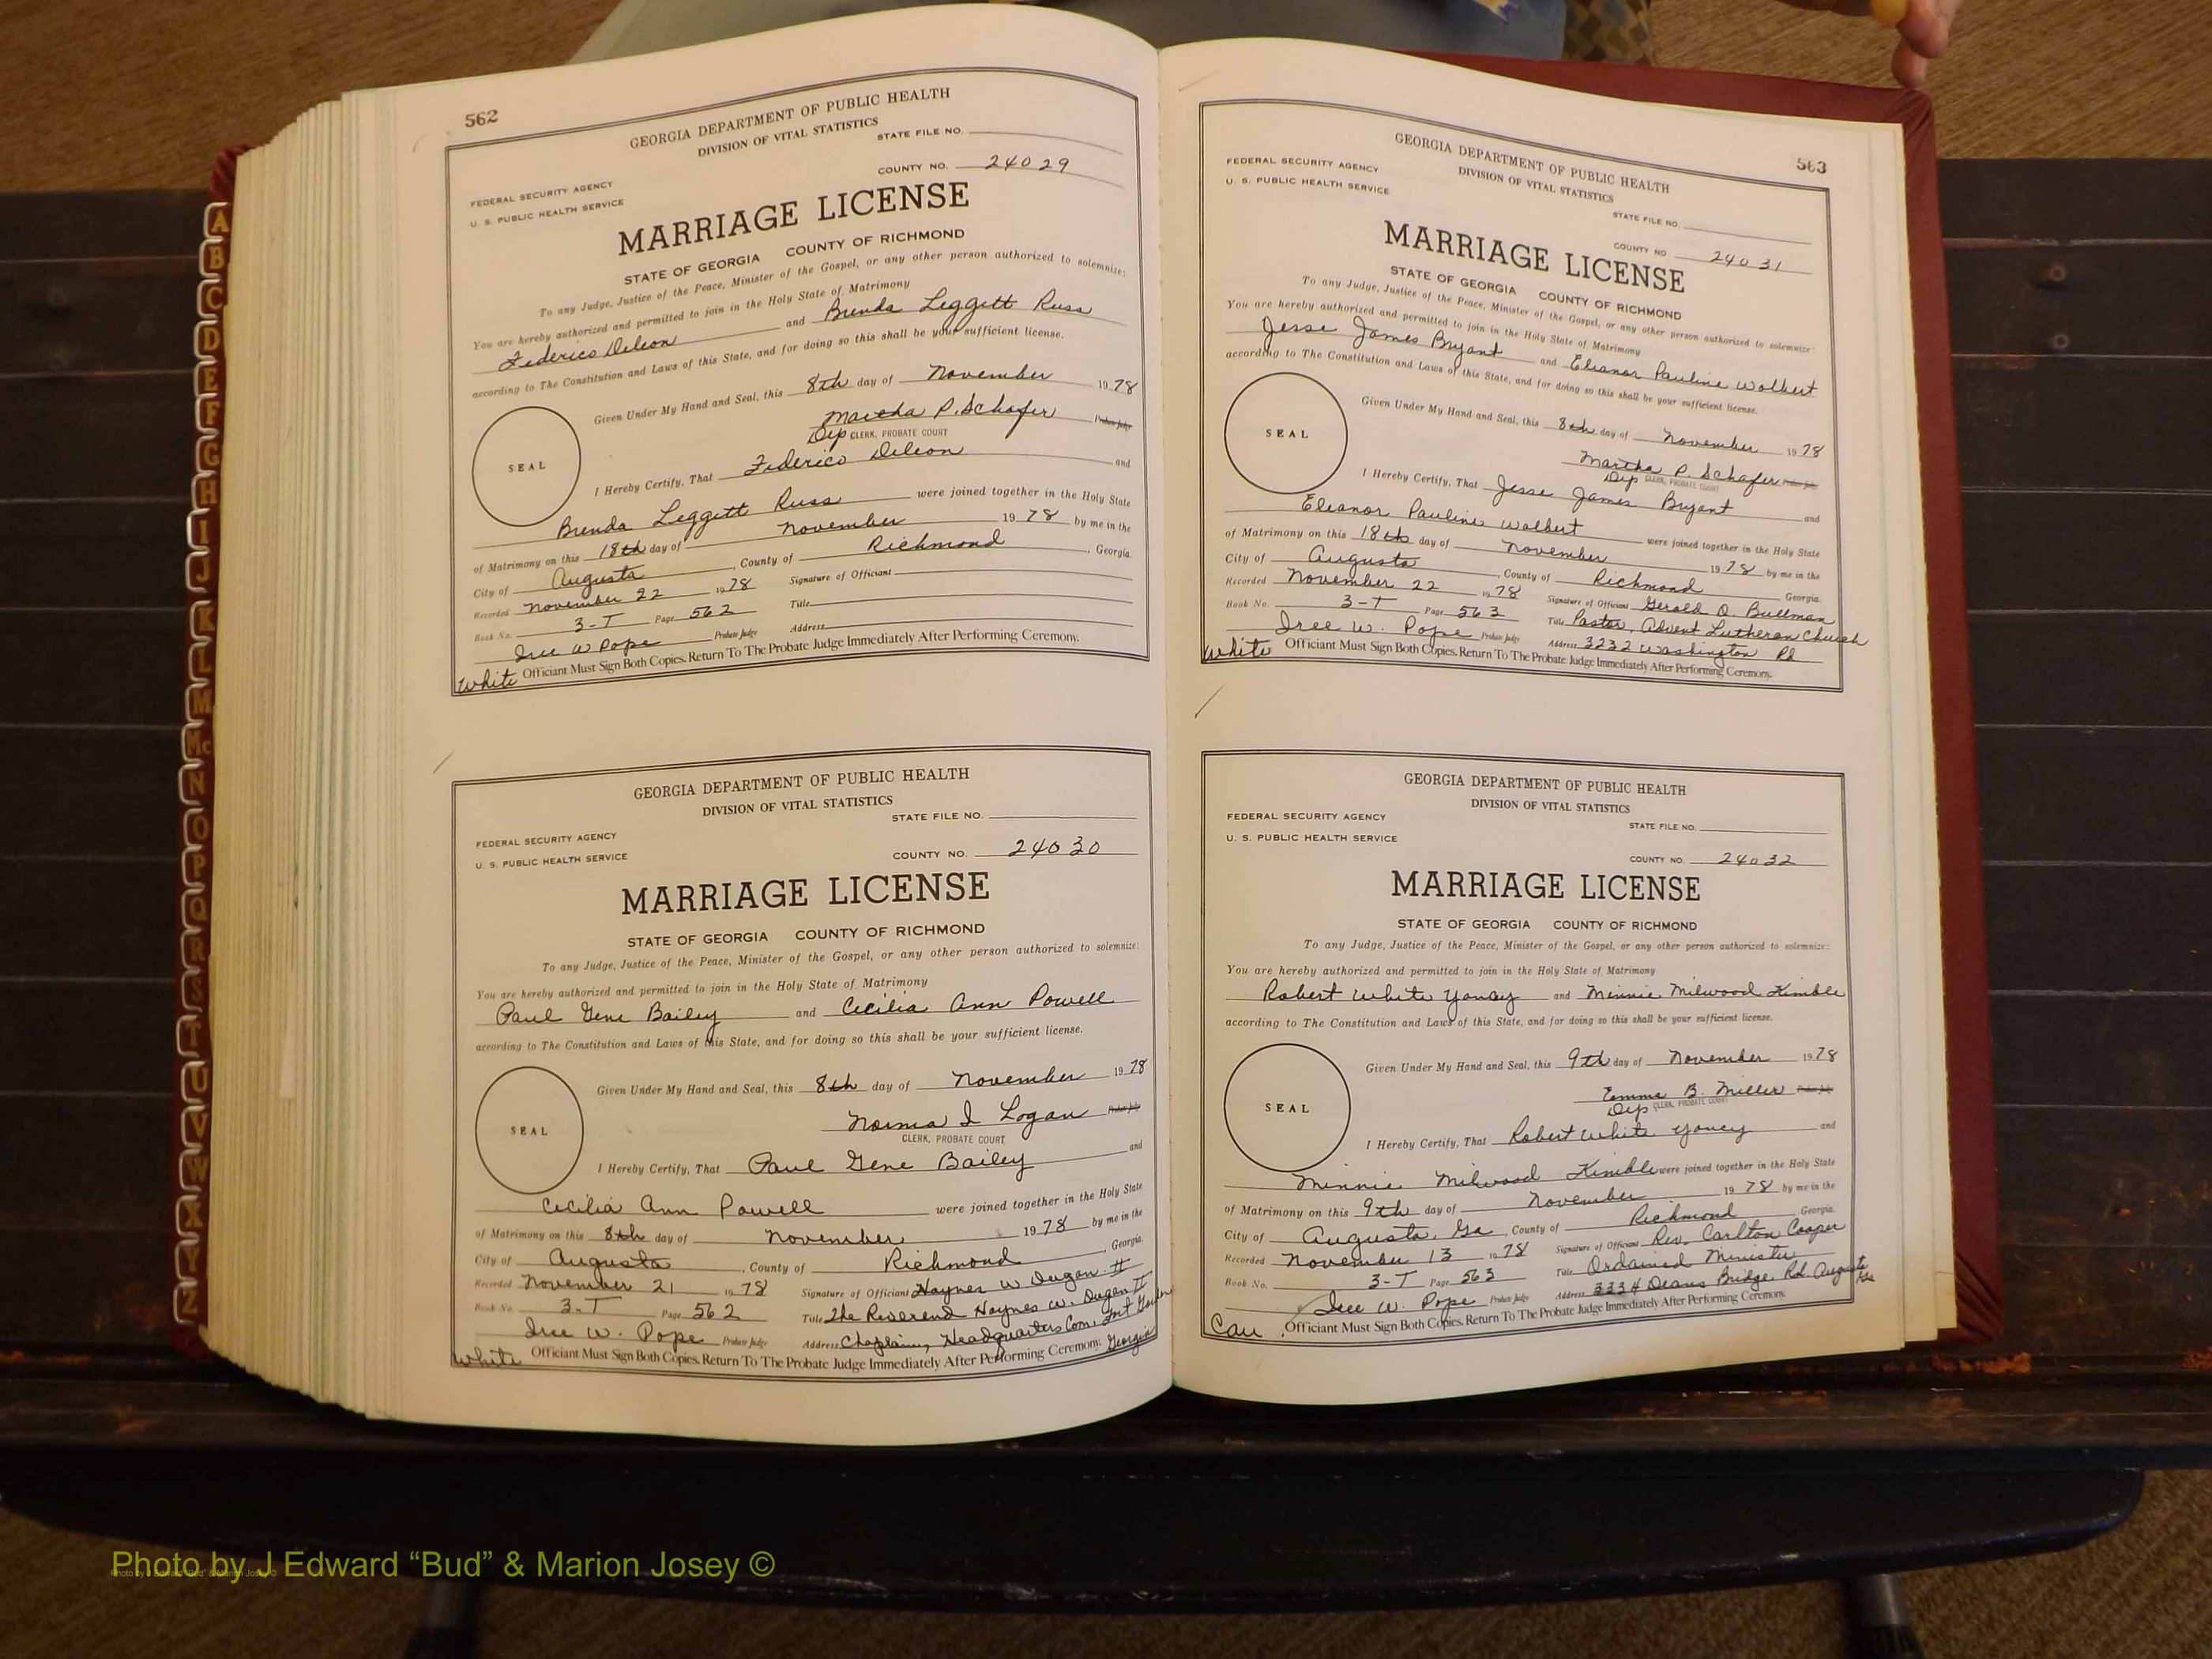 562
GEORGIA DEPARTMENT OF PUBLIC HEALTH
DIVISION OF VITAL STATISTICS
STATE FILE NO.
FEDERAL SECURITY AGENCY
U. S. PUBLIC HEALTH SERVICE
COUNTY NO. 24029
MARRIAGE LICENSE
STATE OF GEORGIA COUNTY OF RICHMOND
To any Judge, Justice of the Peace, Minister of the Gospel, or any other person authorized to solemnize:
You are hereby authorized and permitted to join in the Holy State of Matrimony
Federico Deleon and Brenda Leggett Russ
according to The Constitution and Laws of this State, and for doing so this shall be your sufficient license.
Given Under My Hand and Seal, this 8th day of November 1978
Martha P. Schafer Probate Judge
Dep CLERK, PROBATE COURT
SEAL
I Hereby Certify, That Federico Deleon and
Brenda Leggett Russ were joined together in the Holy State
of Matrimony on this 18th day of November 1978 by me in the
City of Augusta, County of Richmond, Georgia.
Recorded November 22 1978 Signature of Officiant
Book No. 3-T Page 562 Title
Iree W Pope Probate Judge Address
White Officiant Must Sign Both Copies. Return To The Probate Judge Immediately After Performing Ceremony.
GEORGIA DEPARTMENT OF PUBLIC HEALTH
DIVISION OF VITAL STATISTICS
STATE FILE NO.
FEDERAL SECURITY AGENCY
U. S. PUBLIC HEALTH SERVICE
COUNTY NO. 24030
MARRIAGE LICENSE
STATE OF GEORGIA COUNTY OF RICHMOND
To any Judge, Justice of the Peace, Minister of the Gospel, or any other person authorized to solemnize:
You are hereby authorized and permitted to join in the Holy State of Matrimony
Paul Gene Bailey and Cecilia Ann Powell
according to The Constitution and Laws of this State, and for doing so this shall be your sufficient license.
Given Under My Hand and Seal, this 8th day of November 1978
Norma I Logan Probate Judge
CLERK, PROBATE COURT
SEAL
I Hereby Certify, That Paul Gene Bailey and
Cecilia Ann Powell were joined together in the Holy State
of Matrimony on this 8th day of November 1978 by me in the
City of Augusta, County of Richmond, Georgia.
Recorded November 21 1978 Signature of Officiant Haynes W. Dugan II
Book No. 3-T Page 562 Title The Reverend Haynes W. Dugan II
Iree W. Pope Probate Judge Address Chaplain, Headquarters Com, Fort Gordon
Georgia
White Officiant Must Sign Both Copies. Return To The Probate Judge Immediately After Performing Ceremony.
563
GEORGIA DEPARTMENT OF PUBLIC HEALTH
DIVISION OF VITAL STATISTICS
FEDERAL SECURITY AGENCY
U. S. PUBLIC HEALTH SERVICE
STATE FILE NO.
COUNTY NO. 24031
MARRIAGE LICENSE
STATE OF GEORGIA COUNTY OF RICHMOND
To any Judge, Justice of the Peace, Minister of the Gospel, or any other person authorized to solemnize:
You are hereby authorized and permitted to join in the Holy State of Matrimony
Jesse James Bryant and Eleanor Pauline Wolbert
according to The Constitution and Laws of this State, and for doing so this shall be your sufficient license.
Given Under My Hand and Seal, this 8th day of November 1978
Martha P. Schafer Probate Judge
Dep CLERK, PROBATE COURT
SEAL
I Hereby Certify, That Jesse James Bryant and
Eleanor Pauline Wolbert were joined together in the Holy State
of Matrimony on this 18th day of November 1978 by me in the
City of Augusta, County of Richmond Georgia.
Recorded November 22 1978 Signature of Officiant Gerald O. Bullman
Book No. 3-T Page 563 Title Pastor, Advent Lutheran Church
Iree W. Pope Probate Judge Address 3232 Washington Rd
White Officiant Must Sign Both Copies. Return To The Probate Judge Immediately After Performing Ceremony.
GEORGIA DEPARTMENT OF PUBLIC HEALTH
DIVISION OF VITAL STATISTICS
FEDERAL SECURITY AGENCY
STATE FILE NO.
U. S. PUBLIC HEALTH SERVICE
COUNTY NO. 24032
MARRIAGE LICENSE
STATE OF GEORGIA COUNTY OF RICHMOND
To any Judge, Justice of the Peace, Minister of the Gospel, or any other person authorized to solemnize:
You are hereby authorized and permitted to join in the Holy State of Matrimony
Robert White Yancy and Minnie Milwood Kimble
according to The Constitution and Laws of this State, and for doing so this shall be your sufficient license.
Given Under My Hand and Seal, this 9th day of November 1978
Emma B. Miller Probate Judge
Dep CLERK, PROBATE COURT
SEAL
I Hereby Certify, That Robert White Yancy and
Minnie Milwood Kimble were joined together in the Holy State
of Matrimony on this 9th day of November 1978 by me in the
City of Augusta, Ga, County of Richmond Georgia.
Recorded November 13 1978 Signature of Officiant Rev. Carlton Cooper
Book No. 3-T Page 563 Title Ordained Minister
Iree W. Pope Probate Judge Address 3334 Deans Bridge Rd. Augusta
Ga
Cau Officiant Must Sign Both Copies. Return To The Probate Judge Immediately After Performing Ceremony.
A
B
C
D
E
F
G
H
I
J
K
L
M
Mc
N
O
P
Q
R
S
T
U
V
W
X
Y
Z
Photo by J Edward "Bud" & Marion Josey ©
Photo by J Edward "Bud" & Marion Josey ©